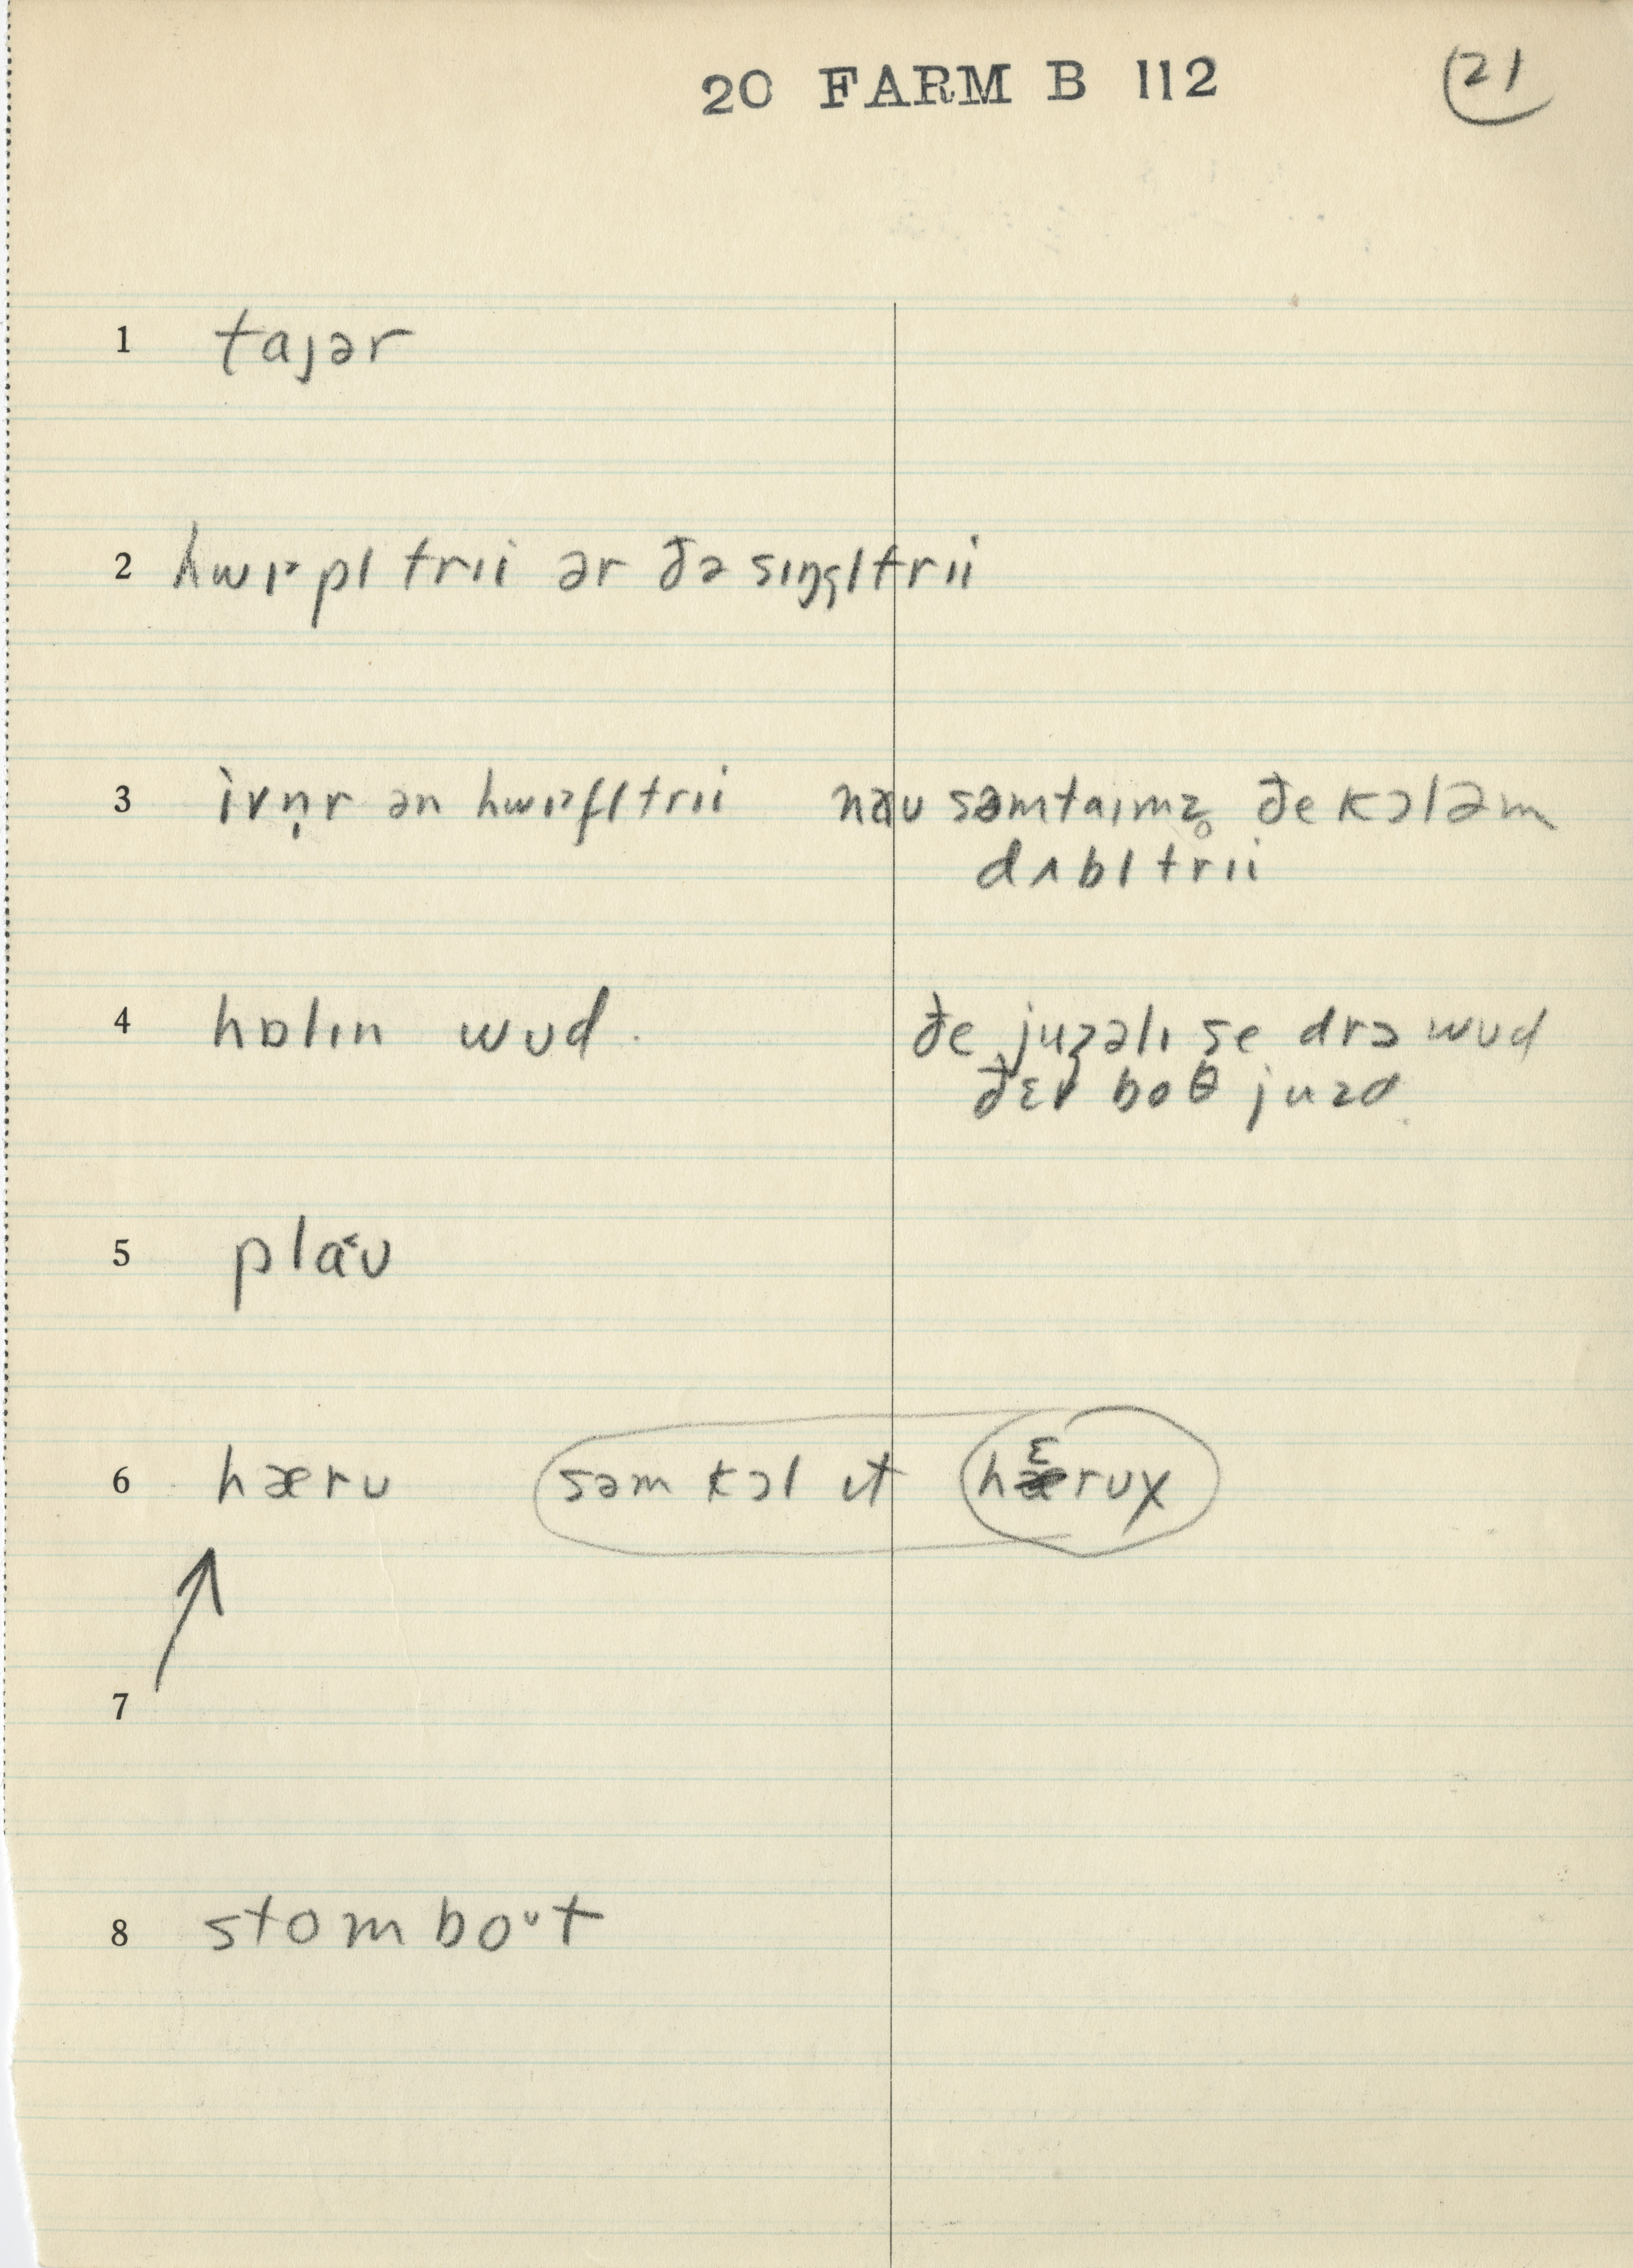 20 FARM B 112 21
1 tajər
2 hwɪpl trɪi ər ðə sɪŋgltrɪi
3 ivṇr ən hwɪfltrɪi naʊ səmtaɪmz̥ ðe kɔləm
dʌbl trɪi
4 hɒlɪn wʊd. ðe juẓəlɪ ṣe drɔ wʊd
ðɛr boθ juzd
5 plaʊ
6 hærʊ səm kɔl ɪt hɛrʊx
7
8 stomboʊt